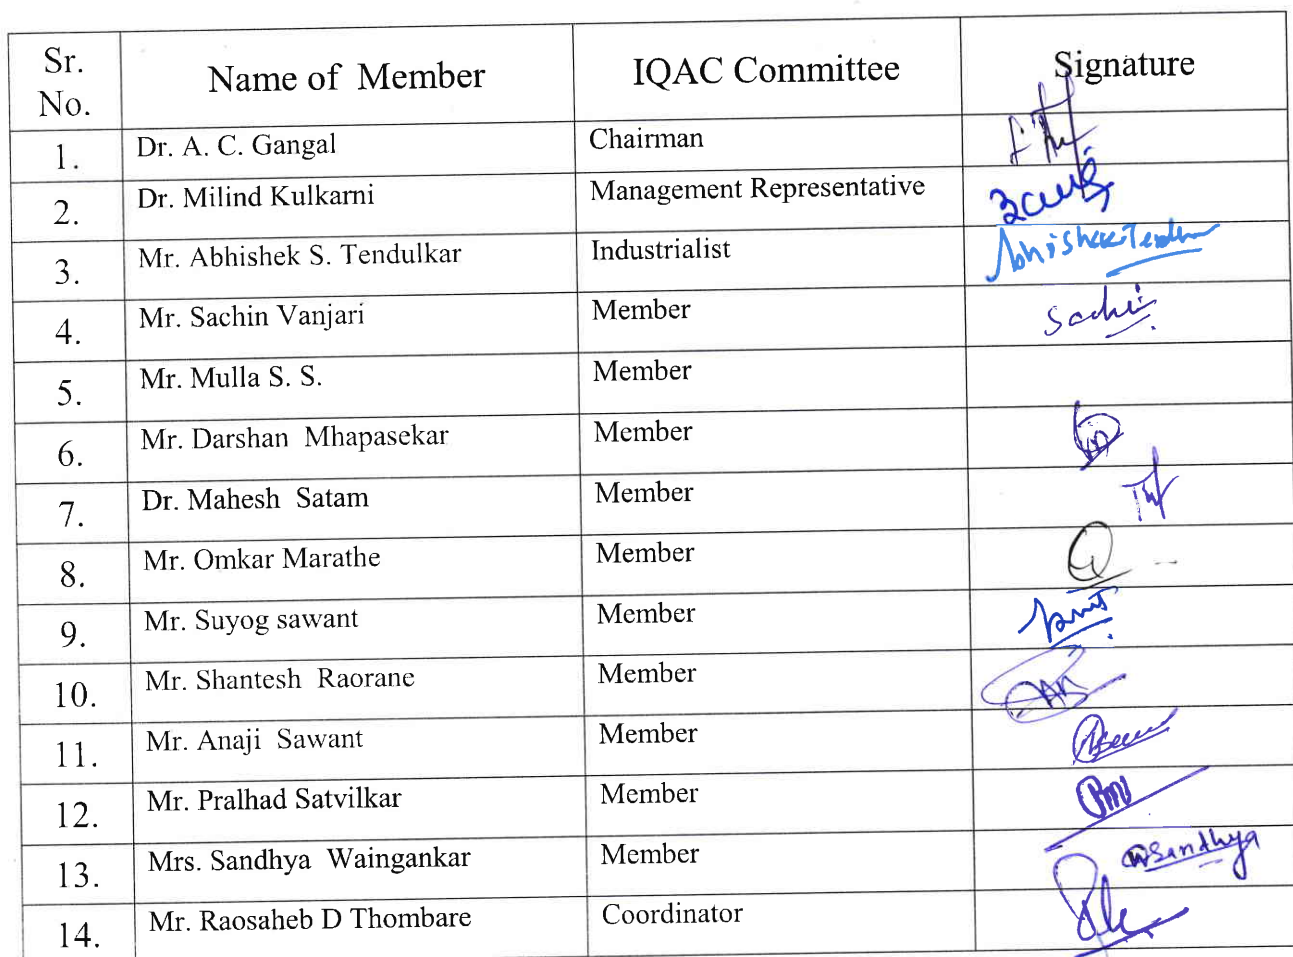 Sr. No. Name of Member IQAC Committee Signature
1. Dr. A. C. Gangal Chairman
2. Dr. Milind Kulkarni Management Representative
3. Mr. Abhishek S. Tendulkar Industrialist
4. Mr. Sachin Vanjari Member Sachin
5. Mr. Mulla S. S. Member
6. Mr. Darshan Mhapasekar Member
7. Dr. Mahesh Satam Member
8. Mr. Omkar Marathe Member
9. Mr. Suyog sawant Member
10. Mr. Shantesh Raorane Member
11. Mr. Anaji Sawant Member
12. Mr. Pralhad Satvilkar Member
13. Mrs. Sandhya Waingankar Member Sandhya
14. Mr. Raosaheb D Thombare Coordinator